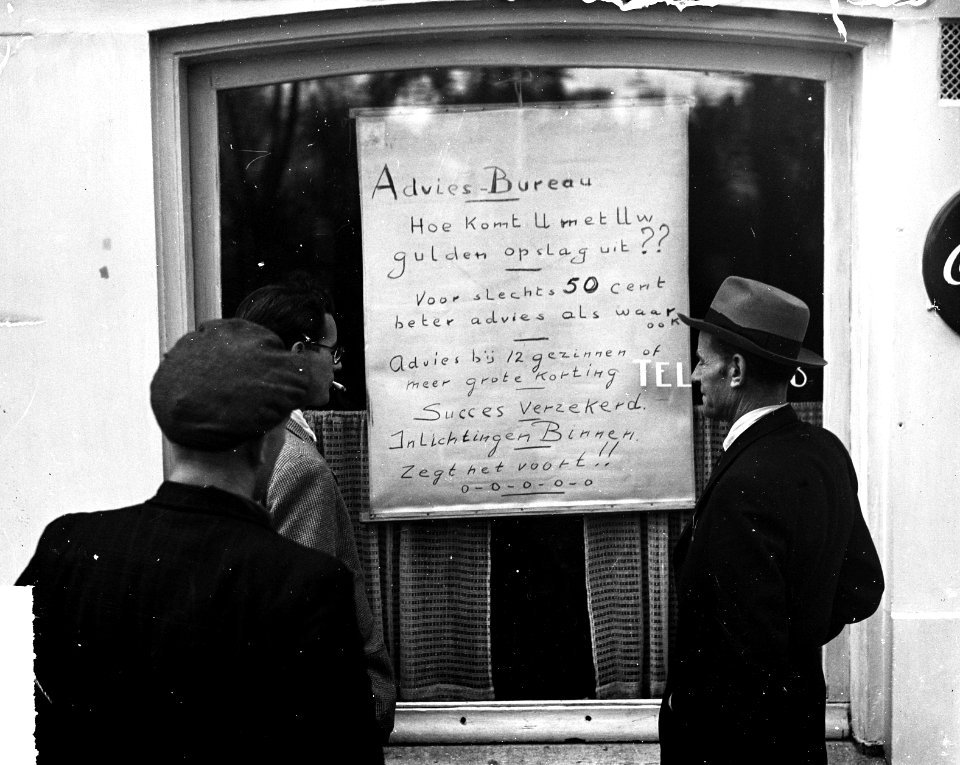 Advies-Bureau
Hoe Komt U met Uw
gulden opslag uit ??
Voor slechts 50 cent
beter advies als waar
ook
Advies bij 12 gezinnen of
meer grote Korting
Succes Verzekerd.
Inlichtingen Binnen.
Zegt het voort!!
o-o-o-o-o
TEL